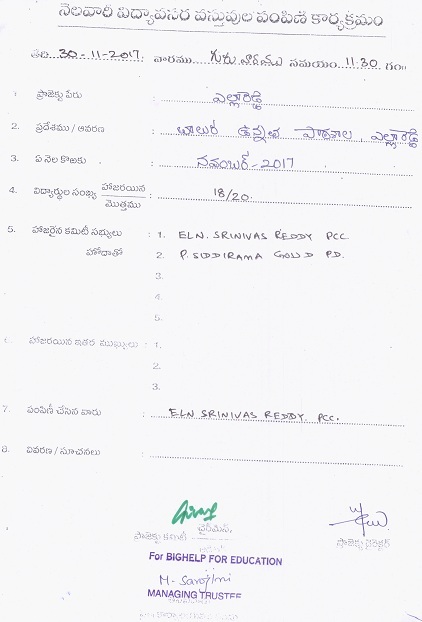 నెలవారీ విద్యావసర వస్తువుల పంపిణీ కార్యక్రమం
తేది 30-11-2017. వారము గురువారము సమయం. 11.30 గం॥
1 ప్రాజెక్టు పేరు : ఎల్లారెడ్డి
2. ప్రదేశము / ఆవరణ : బాలుర ఉన్నత పాఠశాల, ఎల్లారెడ్డి
3. ఏ నెల కొఱకు : నవంబర్-2017
4. విద్యార్థుల సంఖ్య హాజరయిన / మొత్తము : 18/20.
5. హాజరైన కమిటీ సభ్యులు : 1. ELN. SRINIVAS REDDY PCC
హోదాతో 2. P. SIDDIRAMA GOUD P.D.
3.
4.
5.
6. హాజరయిన ఇతర ముఖ్యులు : 1.
2.
3.
7. పంపిణీ చేసిన వారు : ELN SRINIVAS REDDY. PCC.
8. వివరణ / సూచనలు :
ప్రాజెక్టు కమిటీ చైర్మెన్, ప్రాజెక్టు డైరెక్టర్
For BIGHELP FOR EDUCATION
M. Sarojini
MANAGING TRUSTEE